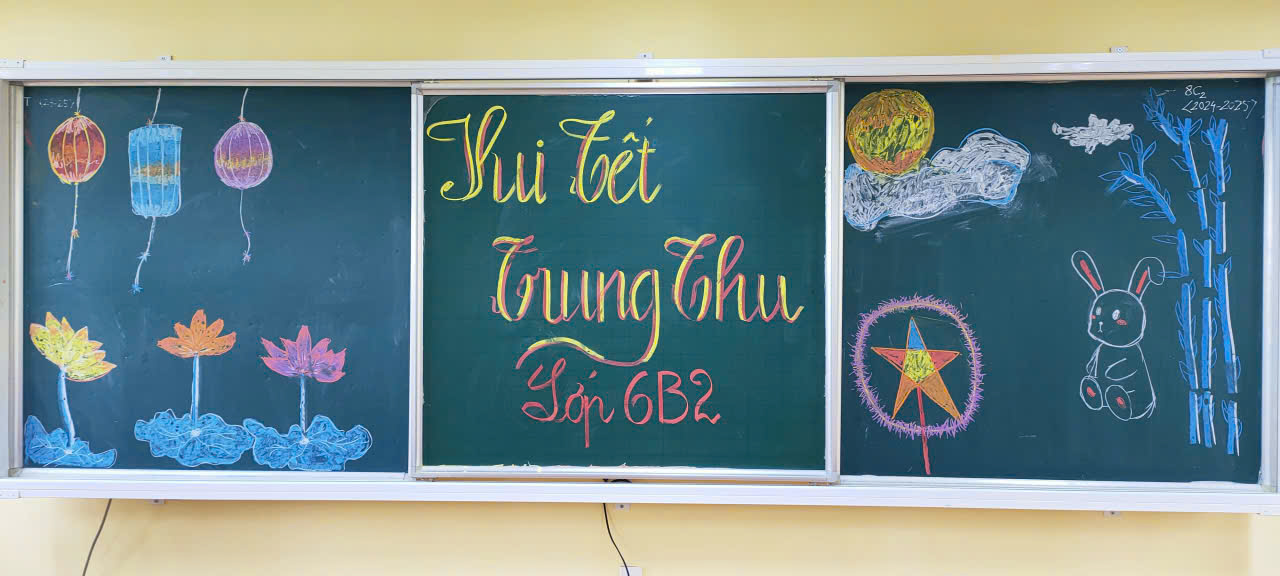 Vui Tết
Trung Thu
Lớp 6B2
8C2
(2024-2025)